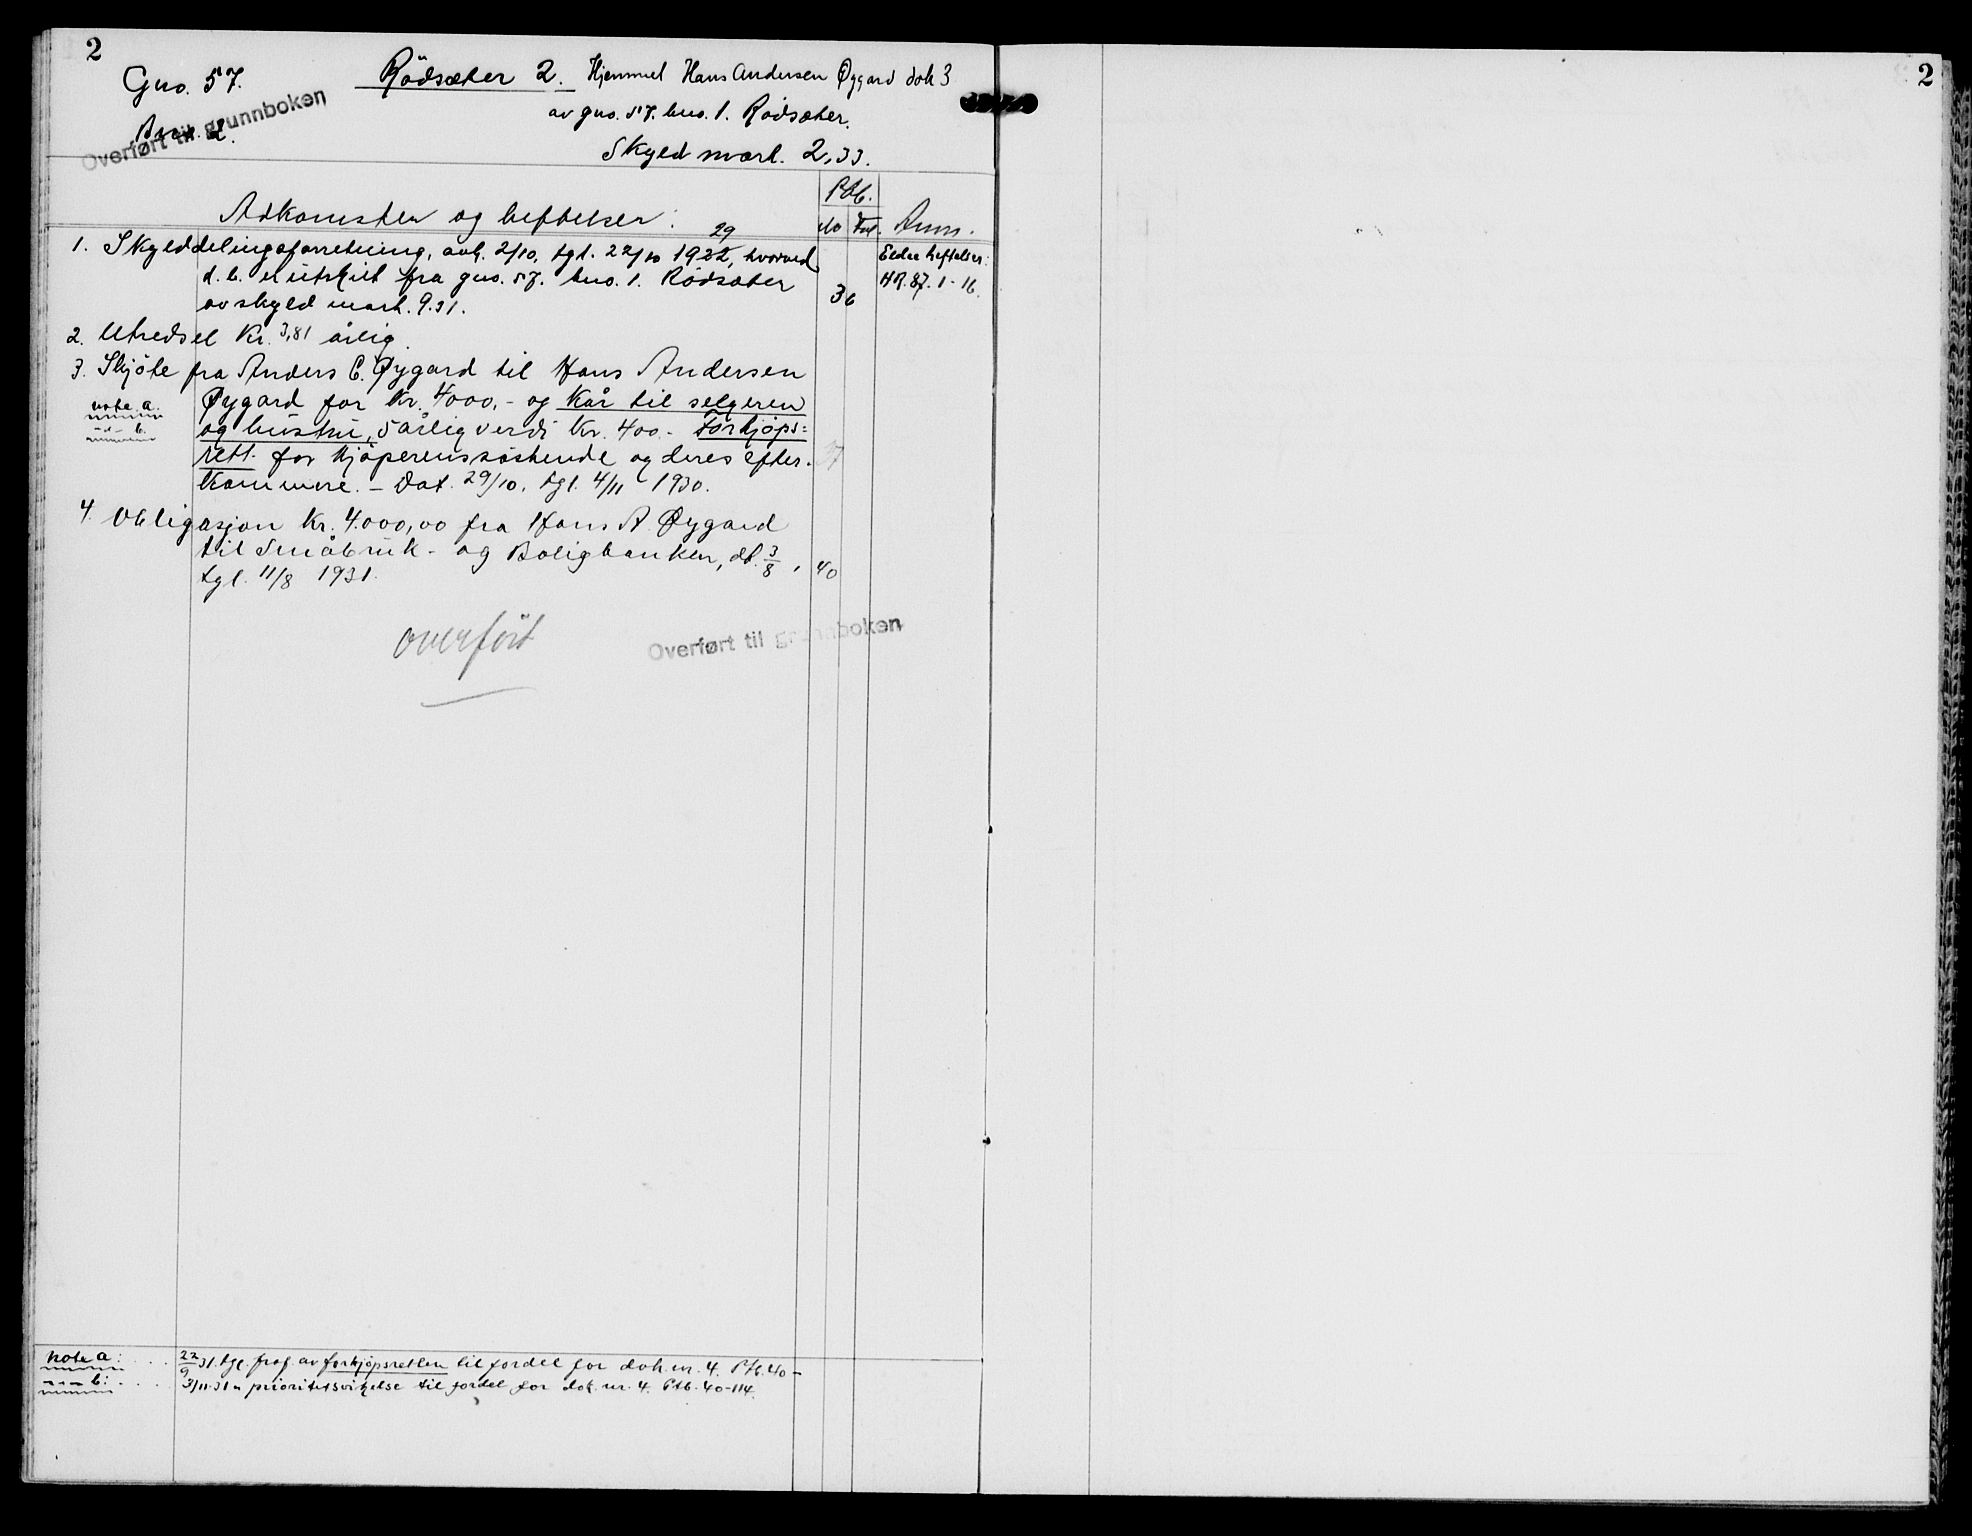 2
Gno. 57.
Rödsæter 2. Hjemmel Hans Andersen Øygard dok 3
Overført til grunnboken
Bno. 2.
av gno. 57. bno. 1. Rödsæter.
Skyld mark. 2,33.
Ptb.
Adkomster og heftelser:
No Fol. Anm.
29
1. Skylddelingsforretning, avh. 2/10, tgl. 22/10 1922, hvorved
d. b. er utskilt fra gno. 57. bno. 1. Rödsæter
av skyld mark. 9.31.
36
Eldre heftelser:
HR. 87. 1-16.
2. Utredsel Kr. 3,81 årlig.
3. Skjöte fra Anders C. Øygard til Hans Andersen
Øygard for Kr. 4000,- og Kår til selgeren
og hustru, 5 årlig verdi Kr. 400.- Forkjöps=
rett. for kjöperens söskende og deres efter-
kommere. - Dat. 29/10, tgl. 4/11 1930.
37
note a.
-"- b.
4. Obligasjon Kr. 4.000,00 fra Hans A. Øygard
til Småbruk- og Boligbanken, dt. 3/8,
tgl. 11/8 1931.
40
overfört
Overført til grunnboken
note a: 22/9 31. tgl. fraf. av forkjöpsretten til fordel for dok. nr. 4. Ptb. 40-
-"- b: 3/11-31 " prioritetsvikelse til fordel for dok. nr. 4. Ptb. 40-114.
2